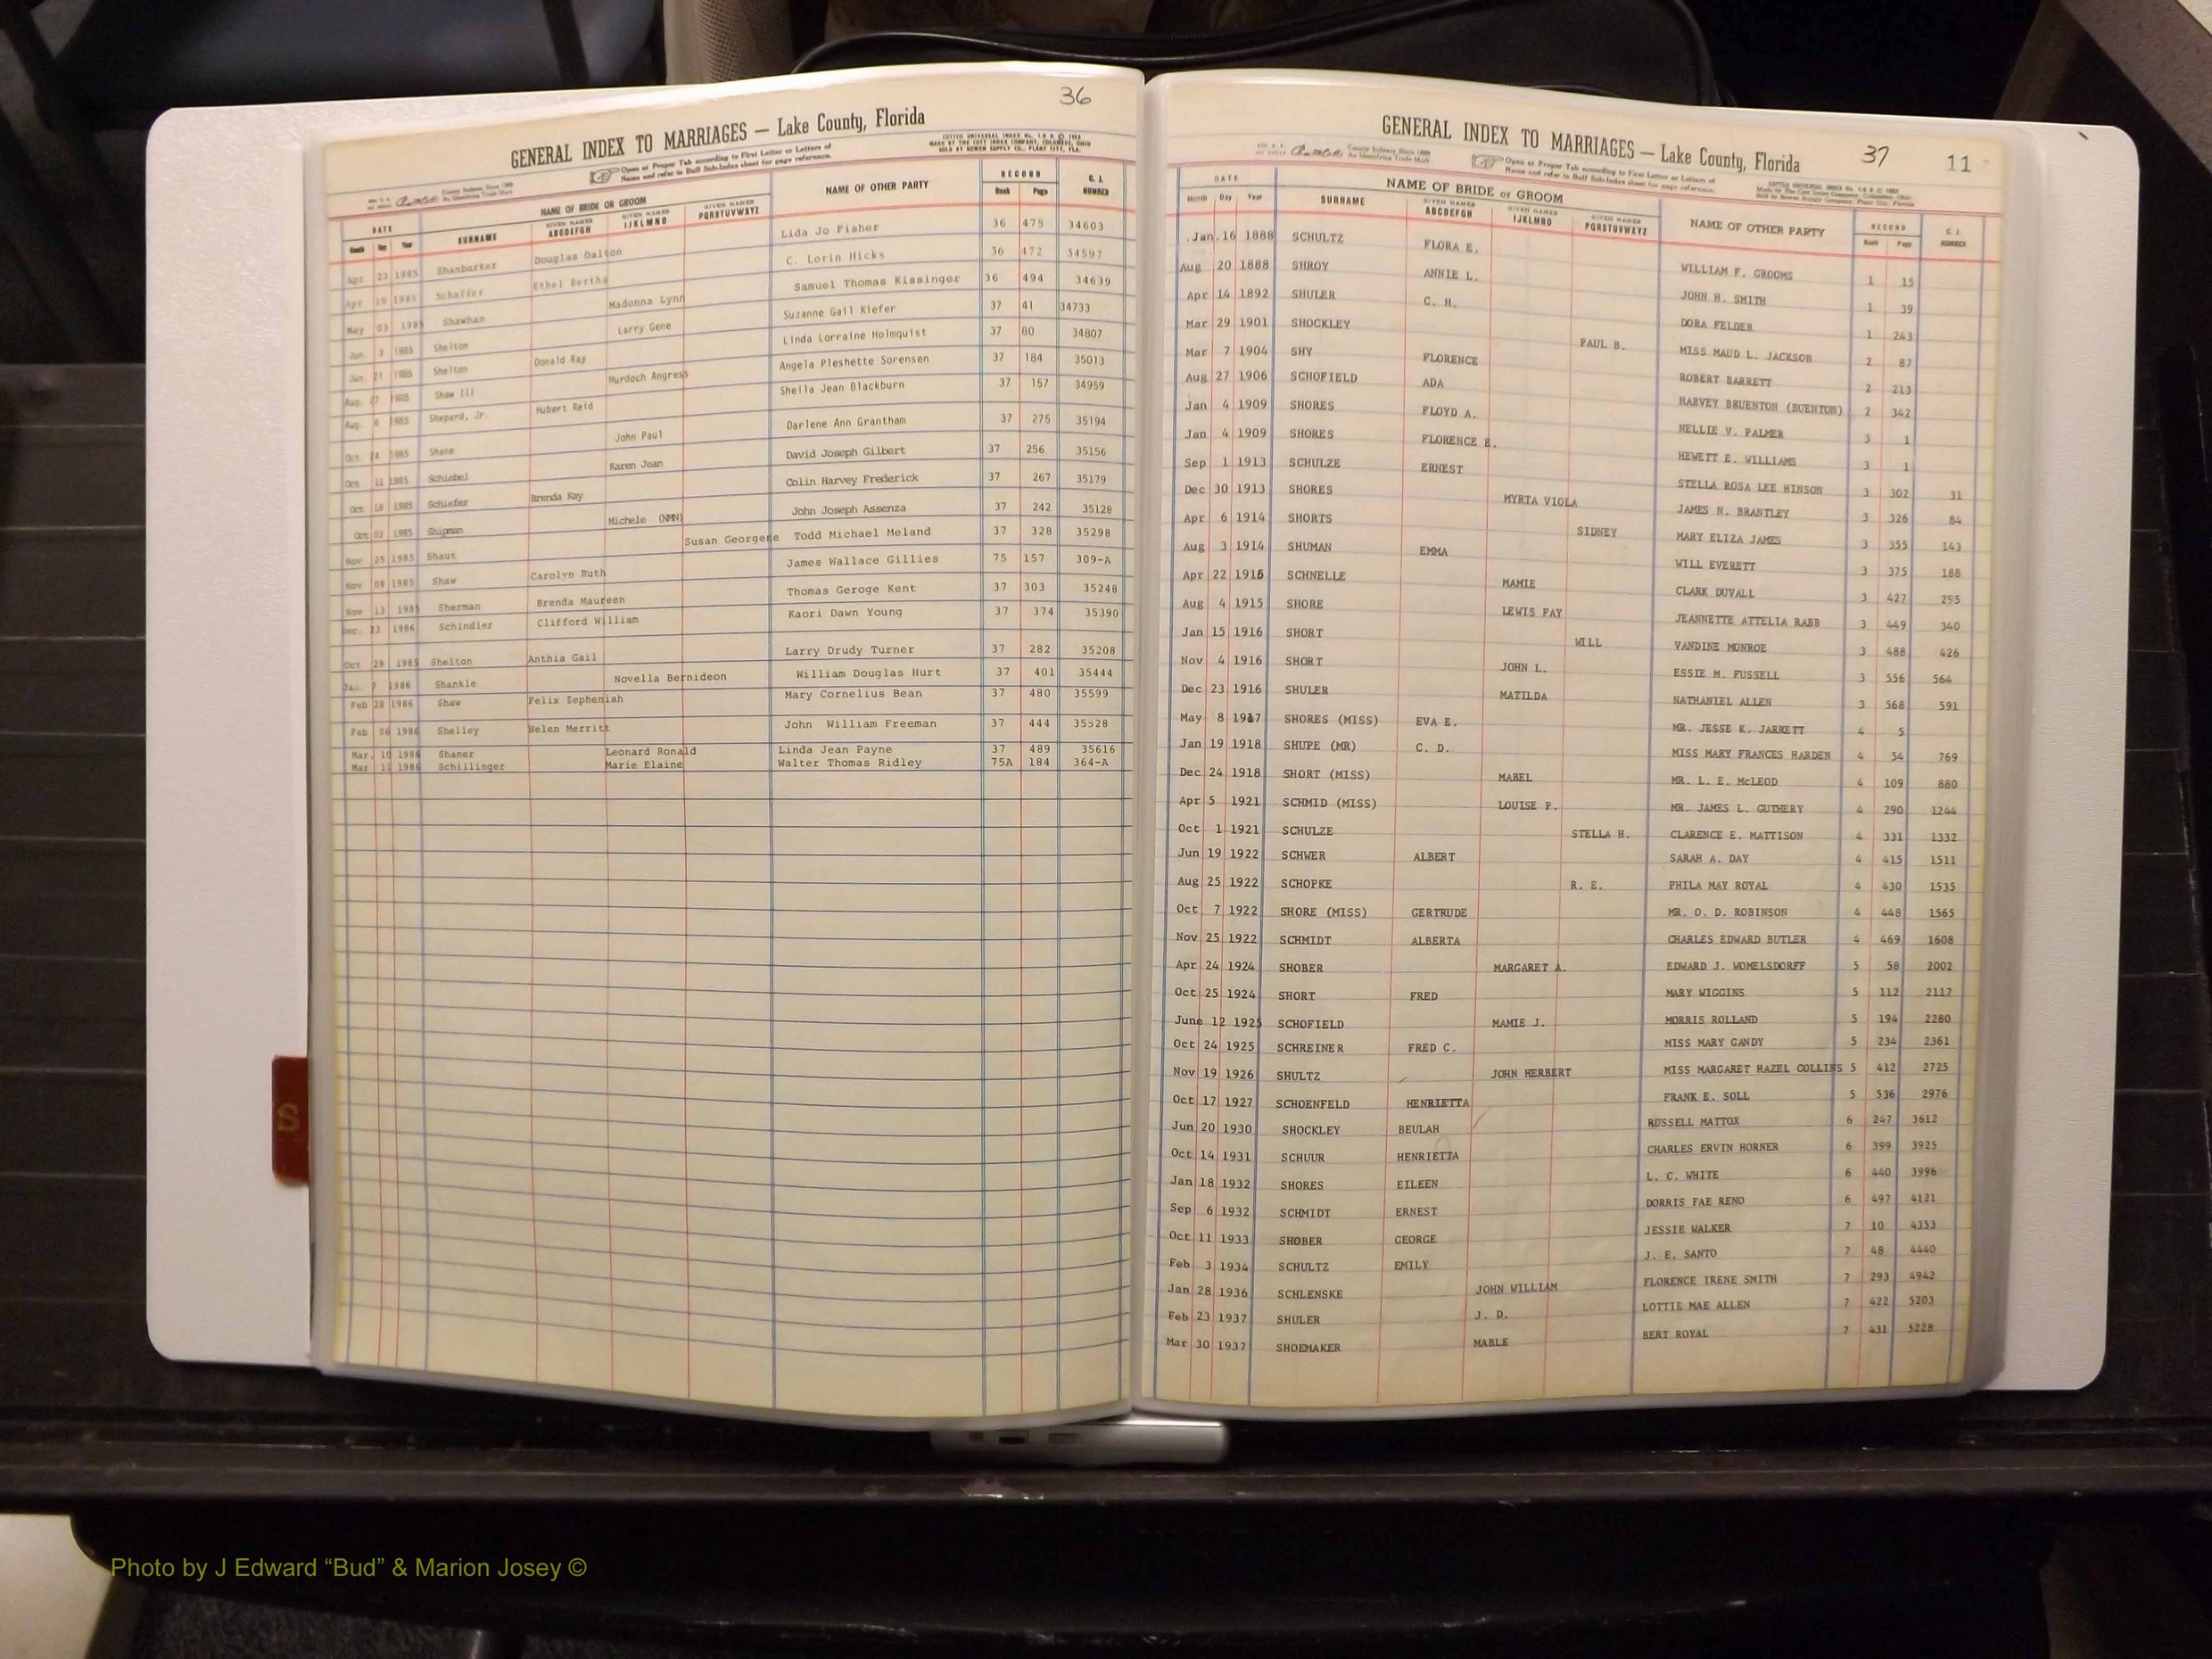 36
GENERAL INDEX TO MARRIAGES — Lake County, Florida
Open at Proper Tab according to First Letter or Letters of
Name and refer to Buff Sub-Index sheet for page reference.
COTTCO UNIVERSAL INDEX
MADE BY THE COTT INDEX COMPANY, COLUMBUS, OHIO
SOLD BY BOWEN SUPPLY CO., PLANT CITY, FLA.
DATE NAME OF BRIDE OR GROOM NAME OF OTHER PARTY RECORD C. I. NUMBER
Month Day Year SURNAME GIVEN NAMES ABCDEFGH GIVEN NAMES IJKLMNO GIVEN NAMES PQRSTUVWXYZ Book Page
Apr 23 1985 Shanbarker Douglas Dalton Lida Jo Fisher 36 475 34603
Apr 19 1985 Schaffer Ethel Bertha C. Lorin Hicks 36 472 34597
May 03 1985 Shawhan Madonna Lynn Samuel Thomas Kissinger 36 494 34639
Jun. 3 1985 Shelton Larry Gene Suzanne Gail Kiefer 37 41 34733
Jun 21 1985 Shelton Donald Ray Linda Lorraine Holmquist 37 80 34807
Aug. 7 1985 Shaw III Murdoch Angress Angela Pleshette Sorensen 37 184 35013
Aug 6 1985 Shepard, Jr. Hubert Reid Sheila Jean Blackburn 37 157 34959
Oct. 1985 Shane John Paul Darlene Ann Grantham 37 275 35194
Oct 11 1985 Schiebel Karen Jean David Joseph Gilbert 37 256 35156
Oct 18 1985 Schiefer Brenda Kay Colin Harvey Frederick 37 267 35179
Oct 02 1985 Shipman Michele (NMN) John Joseph Assenza 37 242 35128
Nov 25 1985 Shaut Susan Georgene Todd Michael Meland 37 328 35298
Nov 08 1985 Shaw Carolyn Ruth James Wallace Gillies 75 157 309-A
Nov 13 1985 Sherman Brenda Maureen Thomas Geroge Kent 37 303 35248
Dec. 23 1986 Schindler Clifford William Kaori Dawn Young 37 374 35390
Oct 29 1985 Shelton Anthia Gail Larry Drudy Turner 37 282 35208
Jan. 7 1986 Shankle Novella Bernideon William Douglas Hurt 37 401 35444
Feb 28 1986 Shaw Felix Zepheniah Mary Cornelius Bean 37 480 35599
Feb 06 1986 Shelley Helen Merritt John William Freeman 37 444 35528
Mar. 10 1986 Shaner Leonard Ronald Linda Jean Payne 37 489 35616
Mar 11 1986 Schillinger Marie Elaine Walter Thomas Ridley 75A 184 364-A
S
37 11
GENERAL INDEX TO MARRIAGES — Lake County, Florida
Open at Proper Tab according to First Letter or Letters of
Name and refer to Buff Sub-Index sheet for page reference.
DATE NAME OF BRIDE or GROOM NAME OF OTHER PARTY RECORD C. I. NUMBER
Month Day Year SURNAME GIVEN NAMES ABCDEFGH GIVEN NAMES IJKLMNO GIVEN NAMES PQRSTUVWXYZ Book Page
Jan. 16 1888 SCHULTZ FLORA E. WILLIAM F. GROOMS 1 15
Aug 20 1888 SHROY ANNIE L. JOHN H. SMITH 1 39
Apr 14 1892 SHULER C. H. DORA FELDER 1 243
Mar 29 1901 SHOCKLEY PAUL B. MISS MAUD L. JACKSON 2 87
Mar 7 1904 SHY FLORENCE ROBERT BARRETT 2 213
Aug 27 1906 SCHOFIELD ADA HARVEY BRUENTON (BUENTON) 2 342
Jan 4 1909 SHORES FLOYD A. NELLIE V. PALMER 3 1
Jan 4 1909 SHORES FLORENCE E. HEWETT E. WILLIAMS 3 1
Sep 1 1913 SCHULZE ERNEST STELLA ROSA LEE HINSON 3 302 31
Dec 30 1913 SHORES MYRTA VIOLA JAMES N. BRANTLEY 3 326 84
Apr 6 1914 SHORTS SIDNEY MARY ELIZA JAMES 3 355 143
Aug 3 1914 SHUMAN EMMA WILL EVERETT 3 375 188
Apr 22 1915 SCHNELLE MAMIE CLARK DUVALL 3 427 295
Aug 4 1915 SHORE LEWIS FAY JEANNETTE ATTELIA RABB 3 449 340
Jan 15 1916 SHORT WILL VANDINE MONROE 3 488 426
Nov 4 1916 SHORT JOHN L. ESSIE M. FUSSELL 3 556 564
Dec 23 1916 SHULER MATILDA NATHANIEL ALLEN 3 568 591
May 8 1917 SHORES (MISS) EVA E. MR. JESSE K. JARRETT 4 5
Jan 19 1918 SHUPE (MR) C. D. MISS MARY FRANCES HARDEN 4 54 769
Dec 24 1918 SHORT (MISS) MABEL MR. L. E. McLEOD 4 109 880
Apr 5 1921 SCHMID (MISS) LOUISE P. MR. JAMES L. GUTHERY 4 290 1244
Oct 1 1921 SCHULZE STELLA H. CLARENCE E. MATTISON 4 331 1332
Jun 19 1922 SCHWER ALBERT SARAH A. DAY 4 415 1511
Aug 25 1922 SCHOPKE R. E. PHILA MAY ROYAL 4 430 1535
Oct 7 1922 SHORE (MISS) GERTRUDE MR. O. D. ROBINSON 4 448 1565
Nov 25 1922 SCHMIDT ALBERTA CHARLES EDWARD BUTLER 4 469 1608
Apr 24 1924 SHOBER MARGARET A. EDWARD J. WOMELSDORFF 5 58 2002
Oct 25 1924 SHORT FRED MARY WIGGINS 5 112 2117
June 12 1925 SCHOFIELD MAMIE J. MORRIS ROLLAND 5 194 2280
Oct 24 1925 SCHREINER FRED C. MISS MARY GANDY 5 234 2361
Nov 19 1926 SHULTZ JOHN HERBERT MISS MARGARET HAZEL COLLINS 5 412 2725
Oct 17 1927 SCHOENFELD HENRIETTA FRANK E. SOLL 5 536 2976
Jun 20 1930 SHOCKLEY BEULAH RUSSELL MATTOX 6 247 3612
Oct 14 1931 SCHUUR HENRIETTA CHARLES ERVIN HORNER 6 399 3925
Jan 18 1932 SHORES EILEEN L. C. WHITE 6 440 3996
Sep 6 1932 SCHMIDT ERNEST DORRIS FAE RENO 6 497 4121
Oct 11 1933 SHOBER GEORGE JESSIE WALKER 7 10 4353
Feb 3 1934 SCHULTZ EMILY J. E. SANTO 7 48 4440
Jan 28 1936 SCHLENSKE JOHN WILLIAM FLORENCE IRENE SMITH 7 293 4942
Feb 23 1937 SHULER J. D. LOTTIE MAE ALLEN 7 422 5203
Mar 30 1937 SHOEMAKER MABLE BERT ROYAL 7 431 5228
Photo by J Edward “Bud” & Marion Josey ©